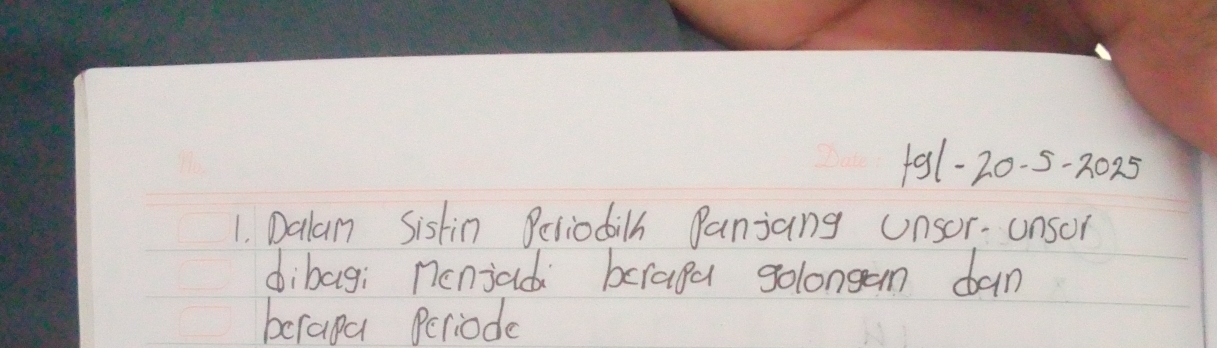 No.
Date: tgl-20-5-2025
1. Dalam Sistim Periodik Panjang unsur-unsur
dibagi Menjadi berapa golongan dan
berapa Periode